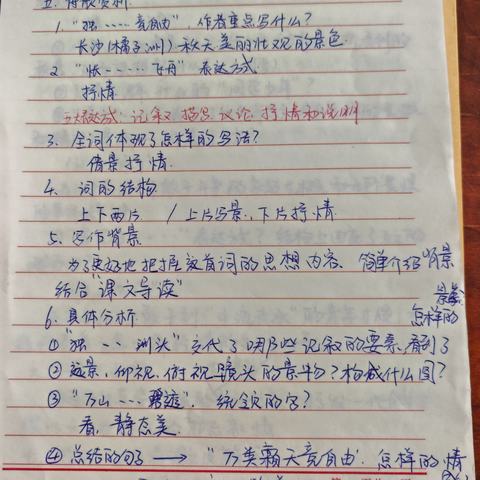 五.
1. "独……竞自由", 作者重点写什么?
长沙(橘子洲)秋天美丽壮观的景色.
2. "怅……飞舟" 表达方式
抒情
五大表达方式: 记叙 描写 议论 抒情和说明
3. 全词体现了怎样的写法?
借景抒情.
4. 词的结构
上下两片 / 上片写景, 下片抒情
5. 写作背景
为了更好地把握这首词的思想内容、简单介绍背景
结合"课文导读"
6. 具体分析 怎样的
① "独……洲头" 交代了哪些记叙的要素, 看到了
② 远景, 仰视, 俯视 镜头的景物? 构成什么图?
③ "万山……碧透". 统领的字?
看, 静态美.
④ 总结的句子 → "万类霜天竞自由". 怎样的情